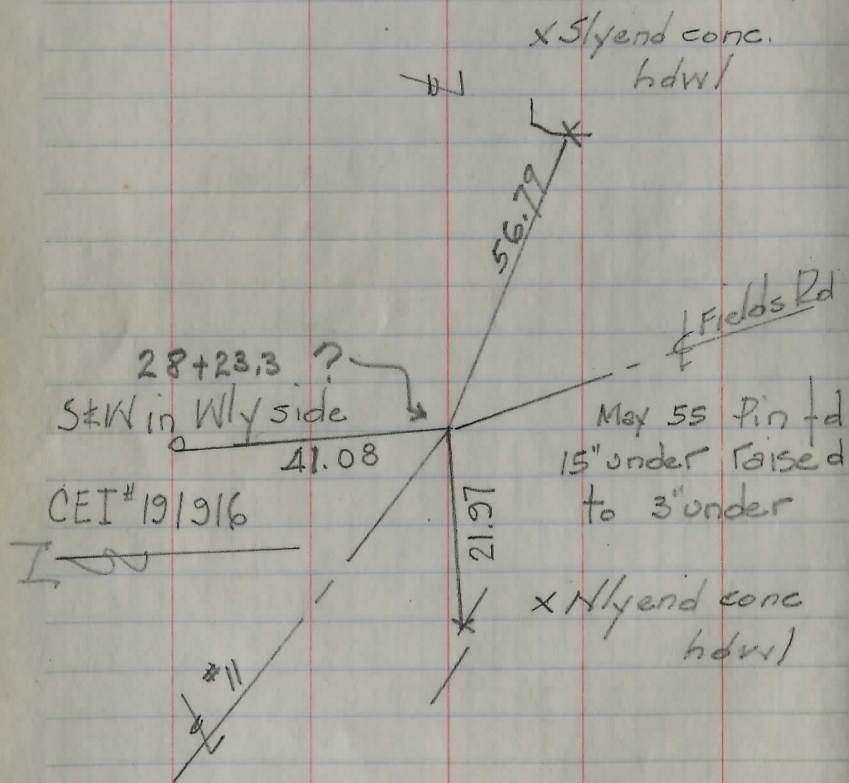 x Slyend conc.
hdwl
56.79
℄ Fields Rd
28+23.3 ?
S&W in Wly side
41.08
May 55 Pin fd
15" under raised
to 3" under
CEI # 191916
21.97
x Nlyend conc
hdwl
#11